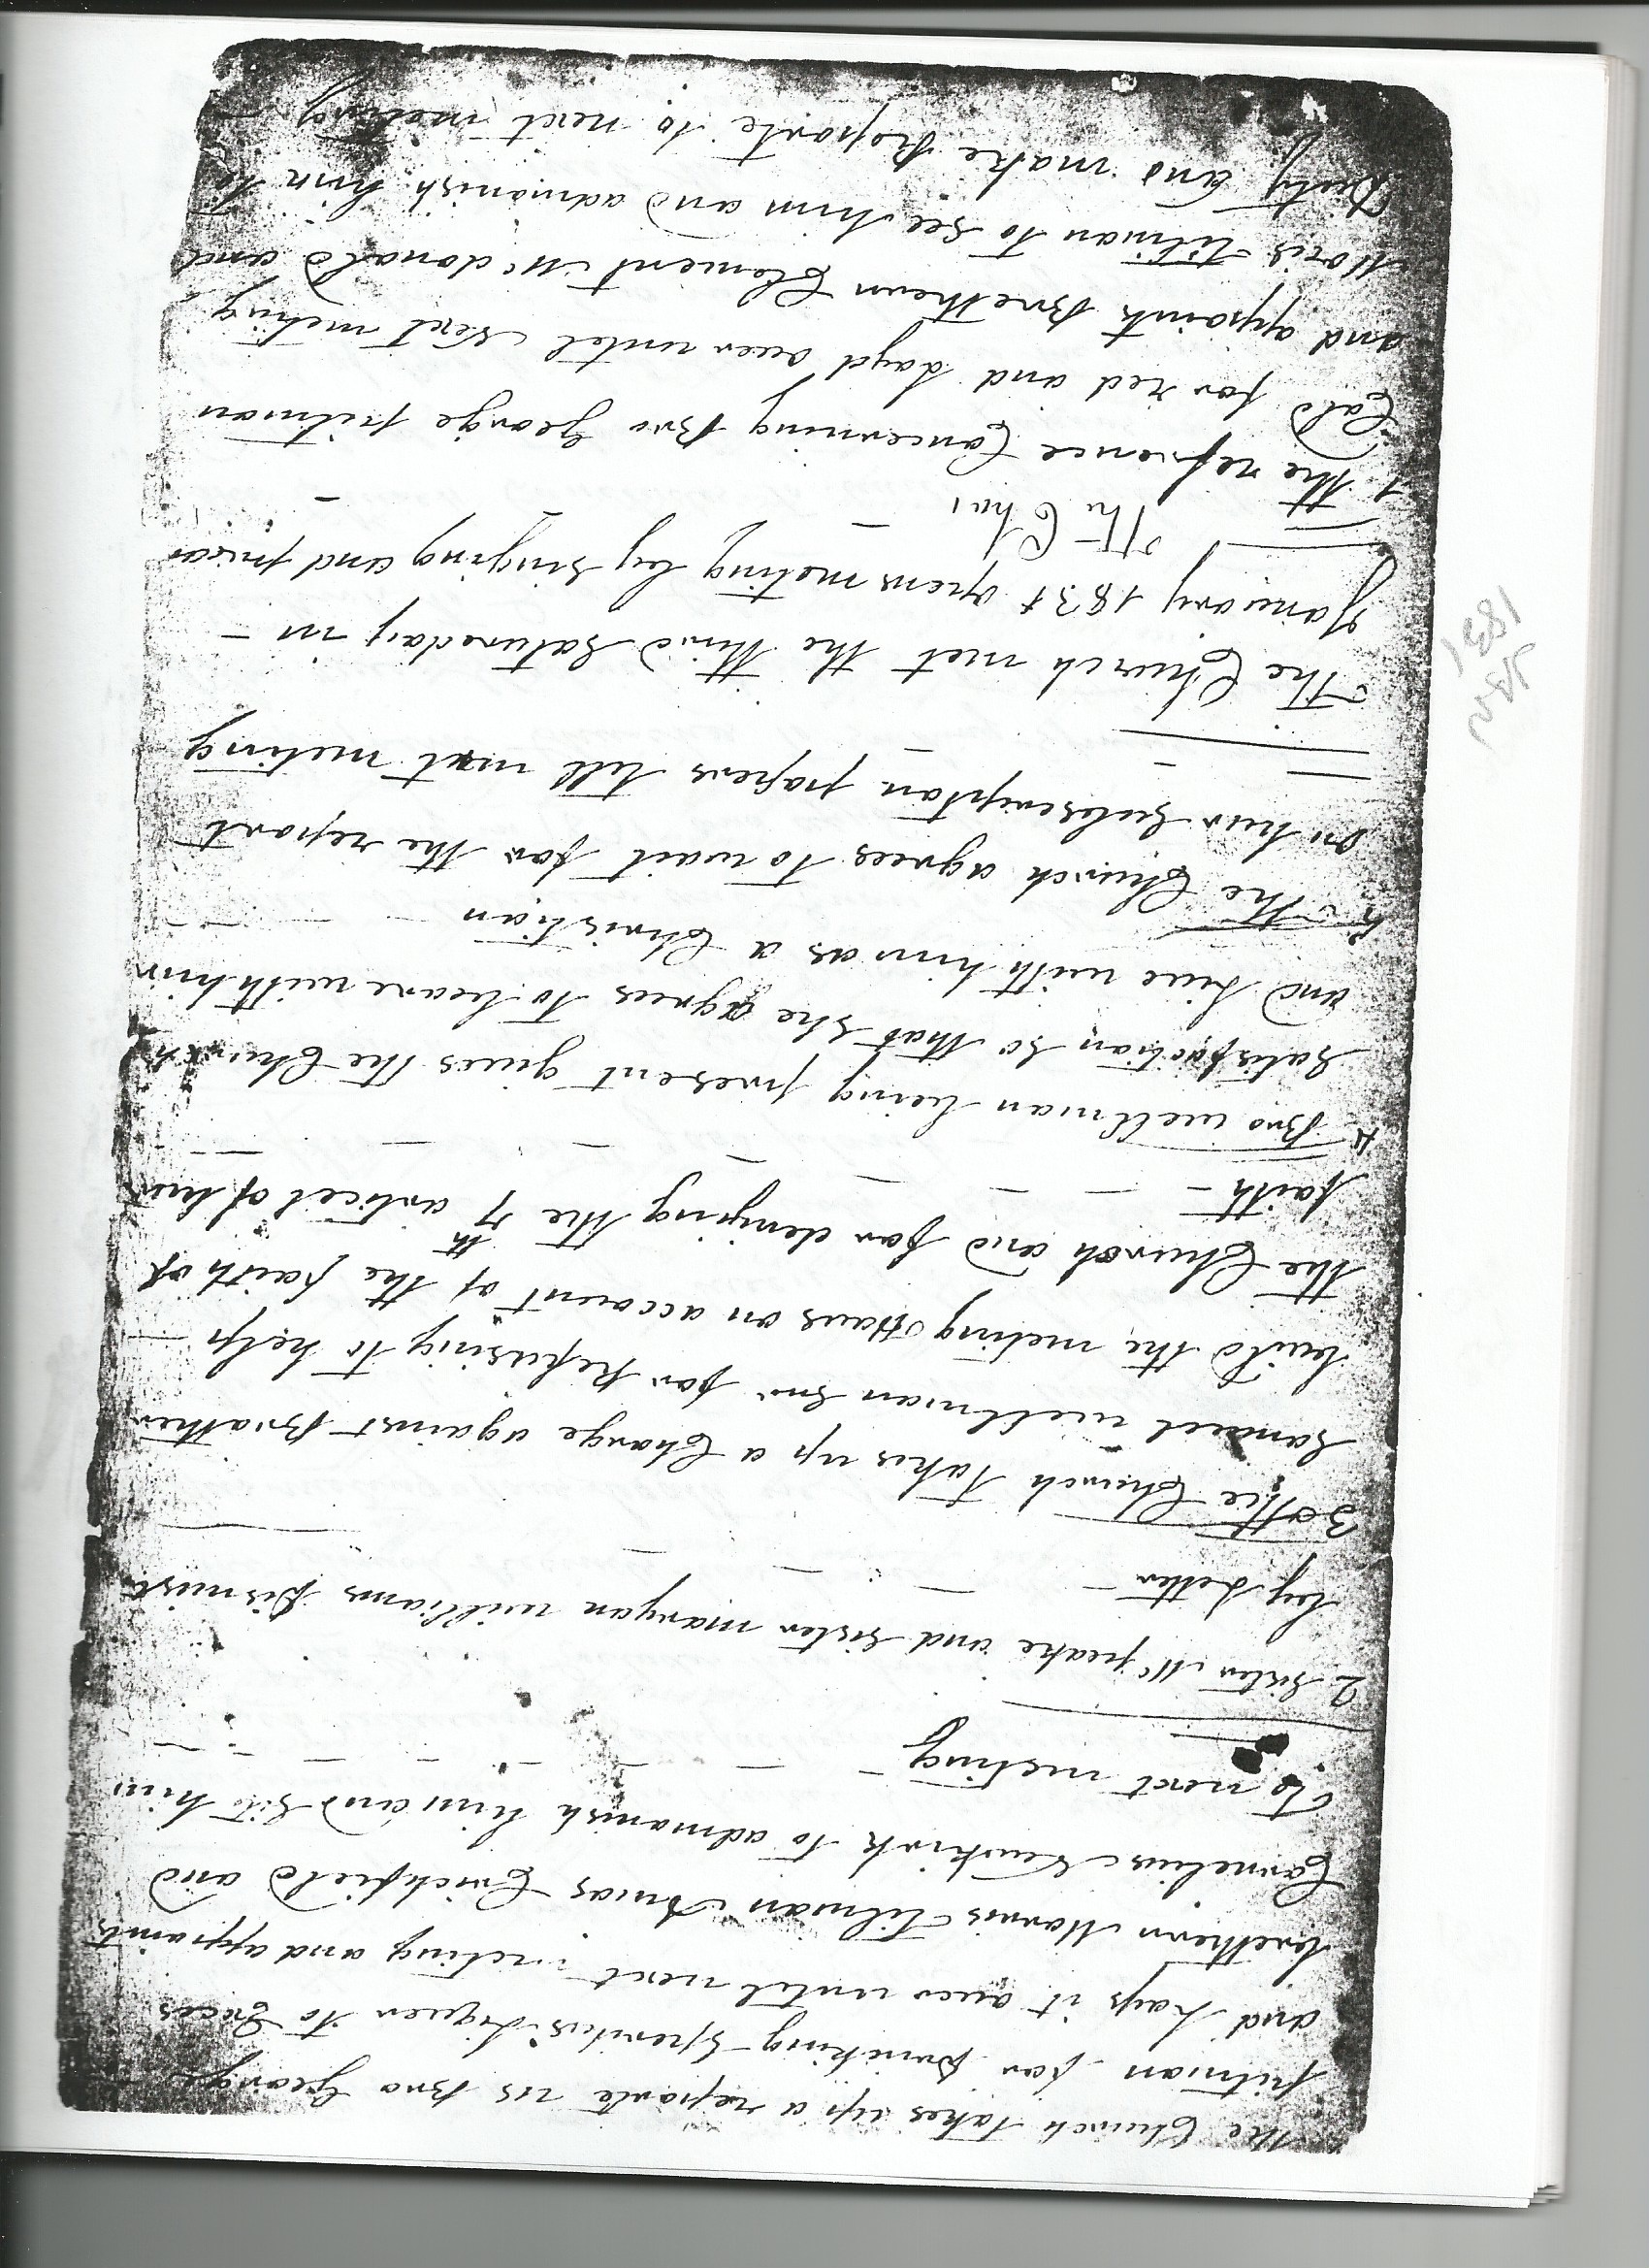 the Church takes up a reporte vs Bro George
pitman for Drinking Spiritus Liquer to Exces
and Lays it over until next meeting and appoints
brethern Morris Tilman Amos Crichfield and
Cornelius Newkirk to admonish him and Site him
to next meeting —
2 Sister McPeake and Sister maryan williams Dismist
by Letter —
3 the Church takes up a Charge against Brother
Samuel wellman Snr for Refusing to help
build the meting Hous on account of the faith of
the Church and for denying the 7th articel of hur
faith —
4 Bro wellman being present gives the Church
Satisfaction so that she agrees to beare with him
and live with him as a Christian
5 the Church agrees to wait for the report
on hur Subscription papers till next meeting
The Church met the third Saturday in —
January 1831 opens meting by singing and prier
Jan
1831
the Chur
1 the refrence Concerning Bro George pitman
Cald for red and Layd over untel Next meting
and appoint Brethern Clement Mcdonald and
Moris Tilman to See him and admonish him to
Duty and make Reporte to next meeting